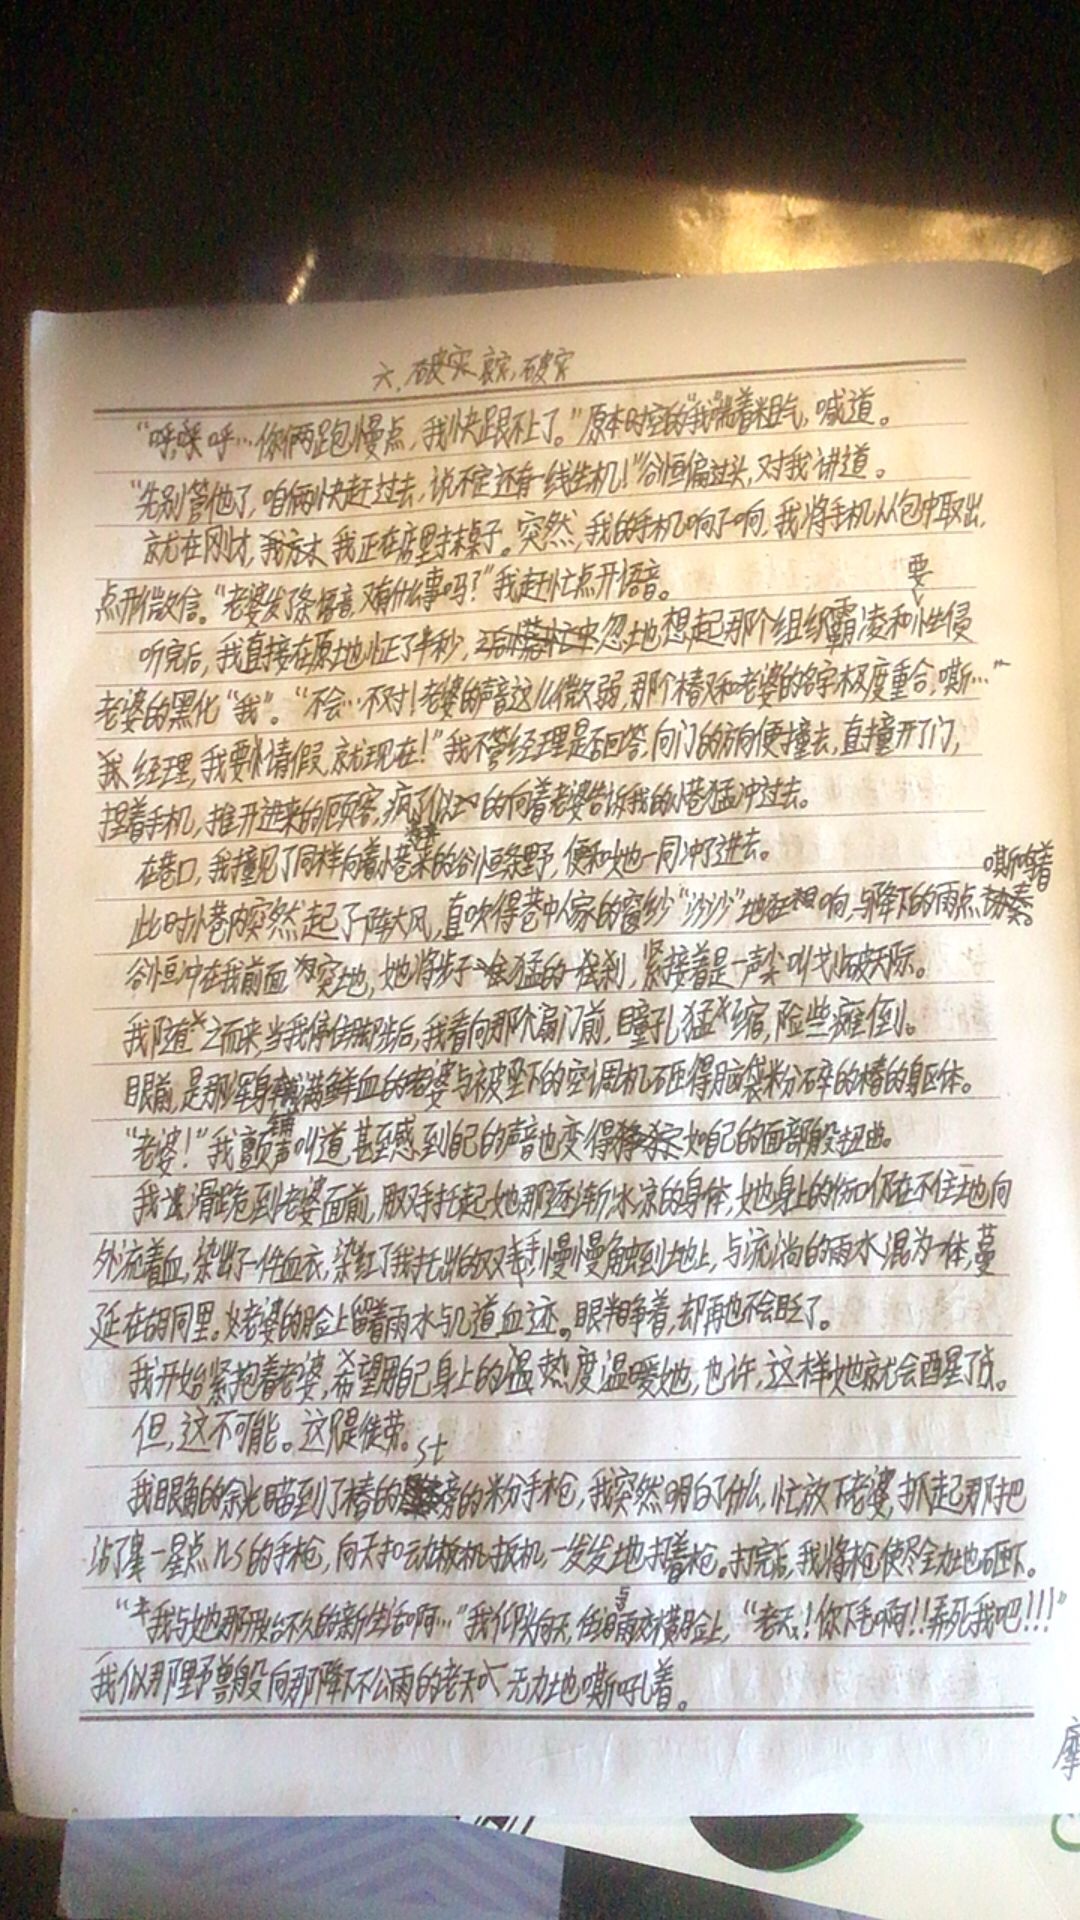 六、破灾、哀灾、破灾
“呼,呼,呼…你俩跑慢点，我快跟不上了。”原本时空的“我”喘着粗气，喊道。
“先别管他了，咱俩快赶过去，说不定还有一线生机！”谷恒偏过头，又对我讲道。
就在刚才，我正在店里抹桌子。突然，我的手机响了响，我将手机从包中取出，
点开微信。“老婆发了条语音，又有什么事吗？”我赶忙点开语音。
听完后，我直接在原地怔了半秒，忽地想起那个组织要霸凌和性侵
老婆的黑化“我”。“不会…不对！老婆的声音这么微弱，那个椿又和老婆的名字极度重合，嘶…”
“我、经理，我要请假，就现在！”我不管经理是否回答，向门的方向便撞去，直撞开了门，
捏着手机，推开进来的顾客，疯了似的向着老婆告诉我的小巷猛冲过去。
在巷口，我撞见了同样向着小巷来的谷恒，便和她一同冲了进去。
此时小巷内突然起了一阵大风，直吹得巷中人家的窗纱“沙沙”地狂响，与降下的雨点嘶鸣着
谷恒冲在我前面，突地，她将步子猛的一刹，紧接着是一声尖叫划破天际。
我随之而来，当我停住脚步后，我看向那个扇门前，瞳孔猛缩，险些瘫倒。
眼前，是那浑身满鲜血的老婆与被坠下的空调机砸得脑袋粉碎的椿的身躯体。
“老婆！”我颤声叫道，甚至感到自己的声音也变得如自己的面部般扭曲。
我滑跪到老婆面前，双手托起她那逐渐冰凉的身体，她身上的伤口仍在不住地向
外流着血，染出了一件血衣，染红了我托出的双手，慢慢触到地上，与流淌的雨水混为一体，蔓
延在胡同里。老婆的脸上留着雨水与几道血迹。眼半睁着，却再也不会眨了。
我开始紧抱着老婆，希望用自己身上的温热度温暖她，也许，这样她就会醒了成。
但，这不可能。这只是徒劳。
我眼角的余光瞄到了椿的旁的粉手枪，我突然明白了什么，忙放下老婆，抓起那把
沾了星点ns的手枪，向天扣动扳机，一发发地打着枪。打完后，我将枪使尽全力地砸下。
“我与她那开始不久的新生活啊…”我仰头向天，任泪与雨交横脸上，“老天！你下毛啊！！弄死我吧！！！”
我似那野兽般向那降下不公雨的老天无力地嘶吼着。